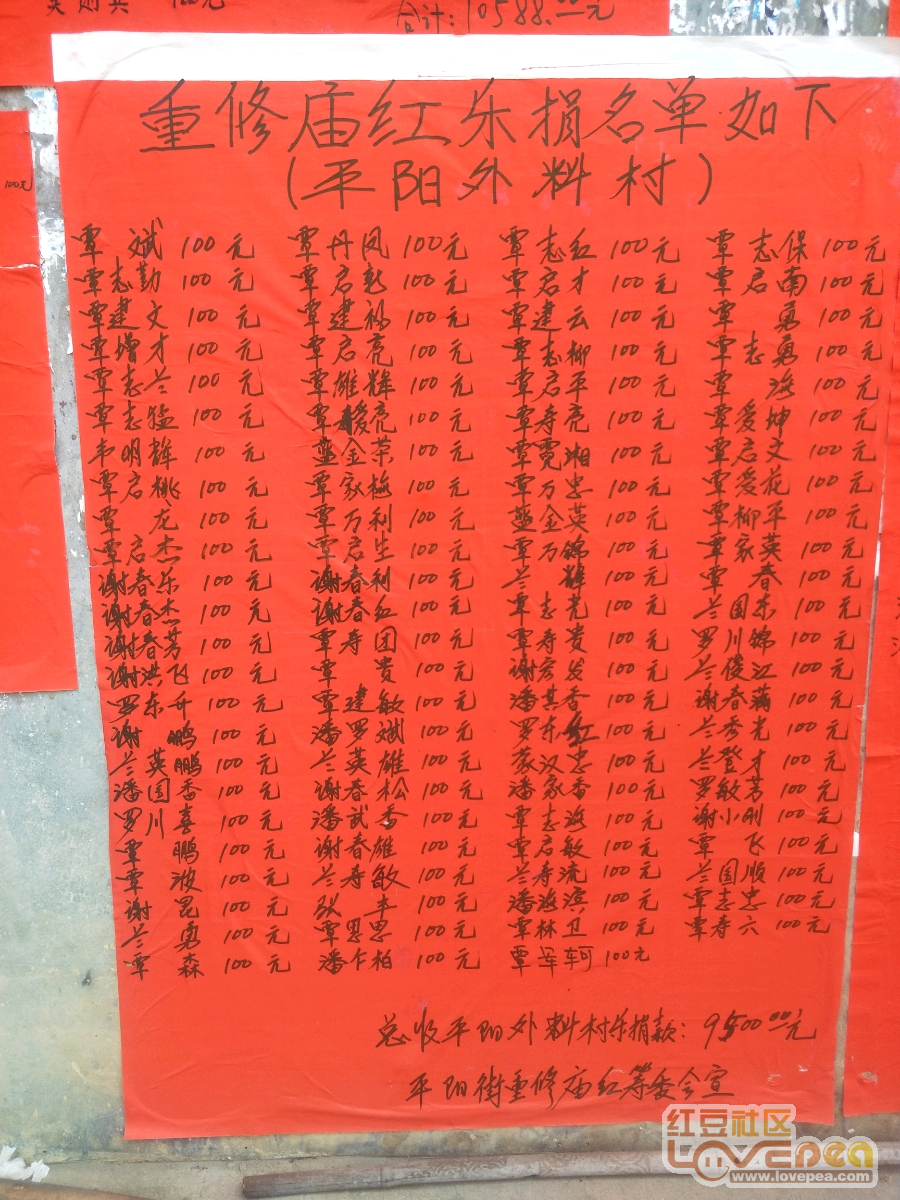 100元
合计:10588.00元
100元
重修庙红乐捐名单如下
(平阳外料村)
覃 斌 100元 覃丹凤 100元 覃志红 100元 覃志保 100元
覃志勤 100元 覃启乾 100元 覃启才 100元 覃启南 100元
覃建文 100元 覃建裕 100元 覃建云 100元 覃 勇 100元
覃增才 100元 覃启亮 100元 覃志柳 100元 覃志勇 100元
覃志兰 100元 覃雄辉 100元 覃启平 100元 覃 海 100元
覃志猛 100元 覃 亮 100元 覃寿亮 100元 覃爱坤 100元
韦明辉 100元 金荣 100元 覃霓湘 100元 覃启文 100元
覃启桃 100元 覃家梅 100元 覃万忠 100元 覃爱花 100元
覃 龙 100元 覃万利 100元 金英 100元 覃柳平 100元
覃启杰 100元 覃启生 100元 覃万锦 100元 覃家英 100元
谢春乐 100元 谢春利 100元 兰 辉 100元 覃 春 100元
谢春杰 100元 谢春红 100元 覃志光 100元 兰国东 100元
谢春芳 100元 覃寿团 100元 覃寿贵 100元 罗川锦 100元
谢洪飞 100元 覃 贵 100元 谢宏发 100元 兰俊江 100元
罗东升 100元 覃建敏 100元 潘其香 100元 谢春藕 100元
谢 鹏 100元 潘罗斌 100元 罗东红 100元 兰秀光 100元
兰英鹏 100元 兰英雄 100元 蒙汉忠 100元 兰登才 100元
潘国香 100元 谢春松 100元 潘家香 100元 罗敏芳 100元
罗川喜 100元 潘武香 100元 覃志海 100元 谢小刚 100元
覃 鹏 100元 谢春雄 100元 覃启敏 100元 覃 飞 100元
覃 波 100元 兰寿敏 100元 兰寿流 100元 兰国顺 100元
谢 昆 100元 张 丰 100元 潘海滨 100元 覃志忠 100元
兰 勇 100元 覃思思 100元 覃林卫 100元 覃寿六 100元
覃 森 100元 潘乍柏 100元 覃军轲 100元
总收平阳外料村乐捐款:9500.00元
平阳街重修庙红筹委会宣
红豆社区
Lovepea
www.lovepea.com